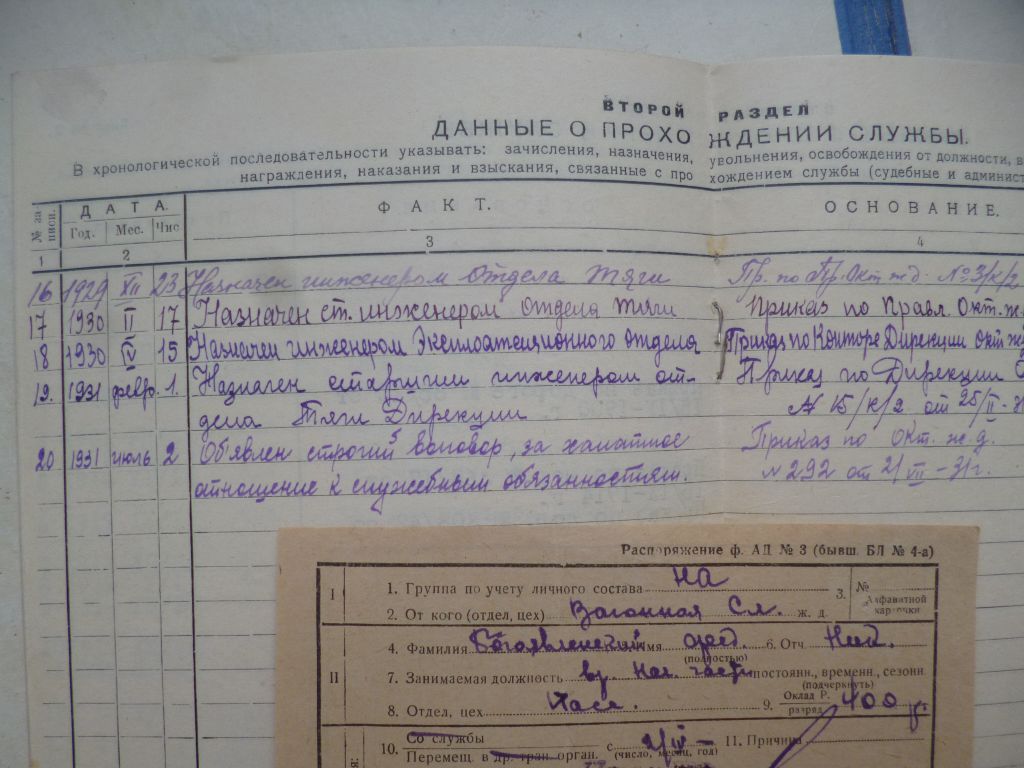 ВТОРОЙ РАЗДЕЛ
ДАННЫЕ О ПРОХОЖДЕНИИ СЛУЖБЫ.
В хронологической последовательности указывать: зачисления, назначения, увольнения, освобождения от должности, в
награждения, наказания и взыскания, связанные с прохождением службы (судебные и админист
№ записи. ДАТА. ФАКТ. ОСНОВАНИЕ.
Год. Мес. Чис
1 2 3 4
16 1929 XII 23 Назначен инженером Отдела Тяги Пр. по Пр. Окт ж д. № 3/к/2
17 1930 II 17 Назначен ст. инженером отдела тяги Приказ по Правл. Окт. ж.
18 1930 IV 15 Назначен инженером Эксплоатационного отдела Приказ по Конторе Дирекции Окт ж
19. 1931 февр. 1. Назначен старшим инженером от- Приказ по Дирекции
дела Тяги Дирекции № 15/к/2 от 25/II-31
20 1931 июль 2 Объявлен строгий выговор, за халатное Приказ по Окт. ж. д.
отношение к служебным обязанностям. № 292 от 2/VII-31г.
Распоряжение ф. АД № 3 (бывш. БЛ № 4-а)
I 1. Группа по учету личного состава НА 3. № Алфавитной карточки
2. От кого (отдел, цех) Вагонная Сл. ж. д.
4. Фамилия Богоявленский имя 6. Отч. Ник.
(полностью)
II 7. Занимаемая должность вр. Нач. части постоянн., временн., сезонн
(подчеркнуть)
8. Отдел, цех Пасс. 9. Оклад Р. разряд 400
10. Со службы с 2/IV- 11. Причина
Перемещ. в др. тран. орган. (число, месяц, год)